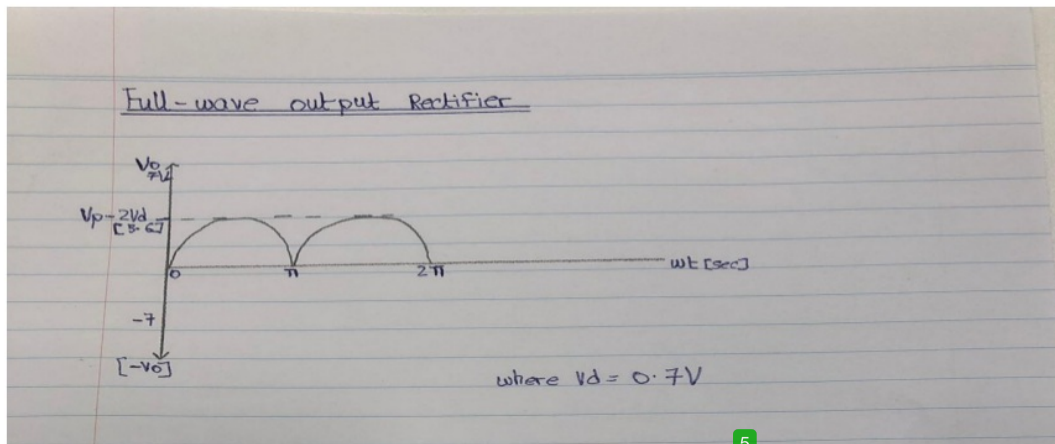 Full-wave output Rectifier
Vo
7V
Vp-2Vd
[5.6]
0 π 2π wt [sec]
-7
[-Vo]
where Vd = 0.7V
5